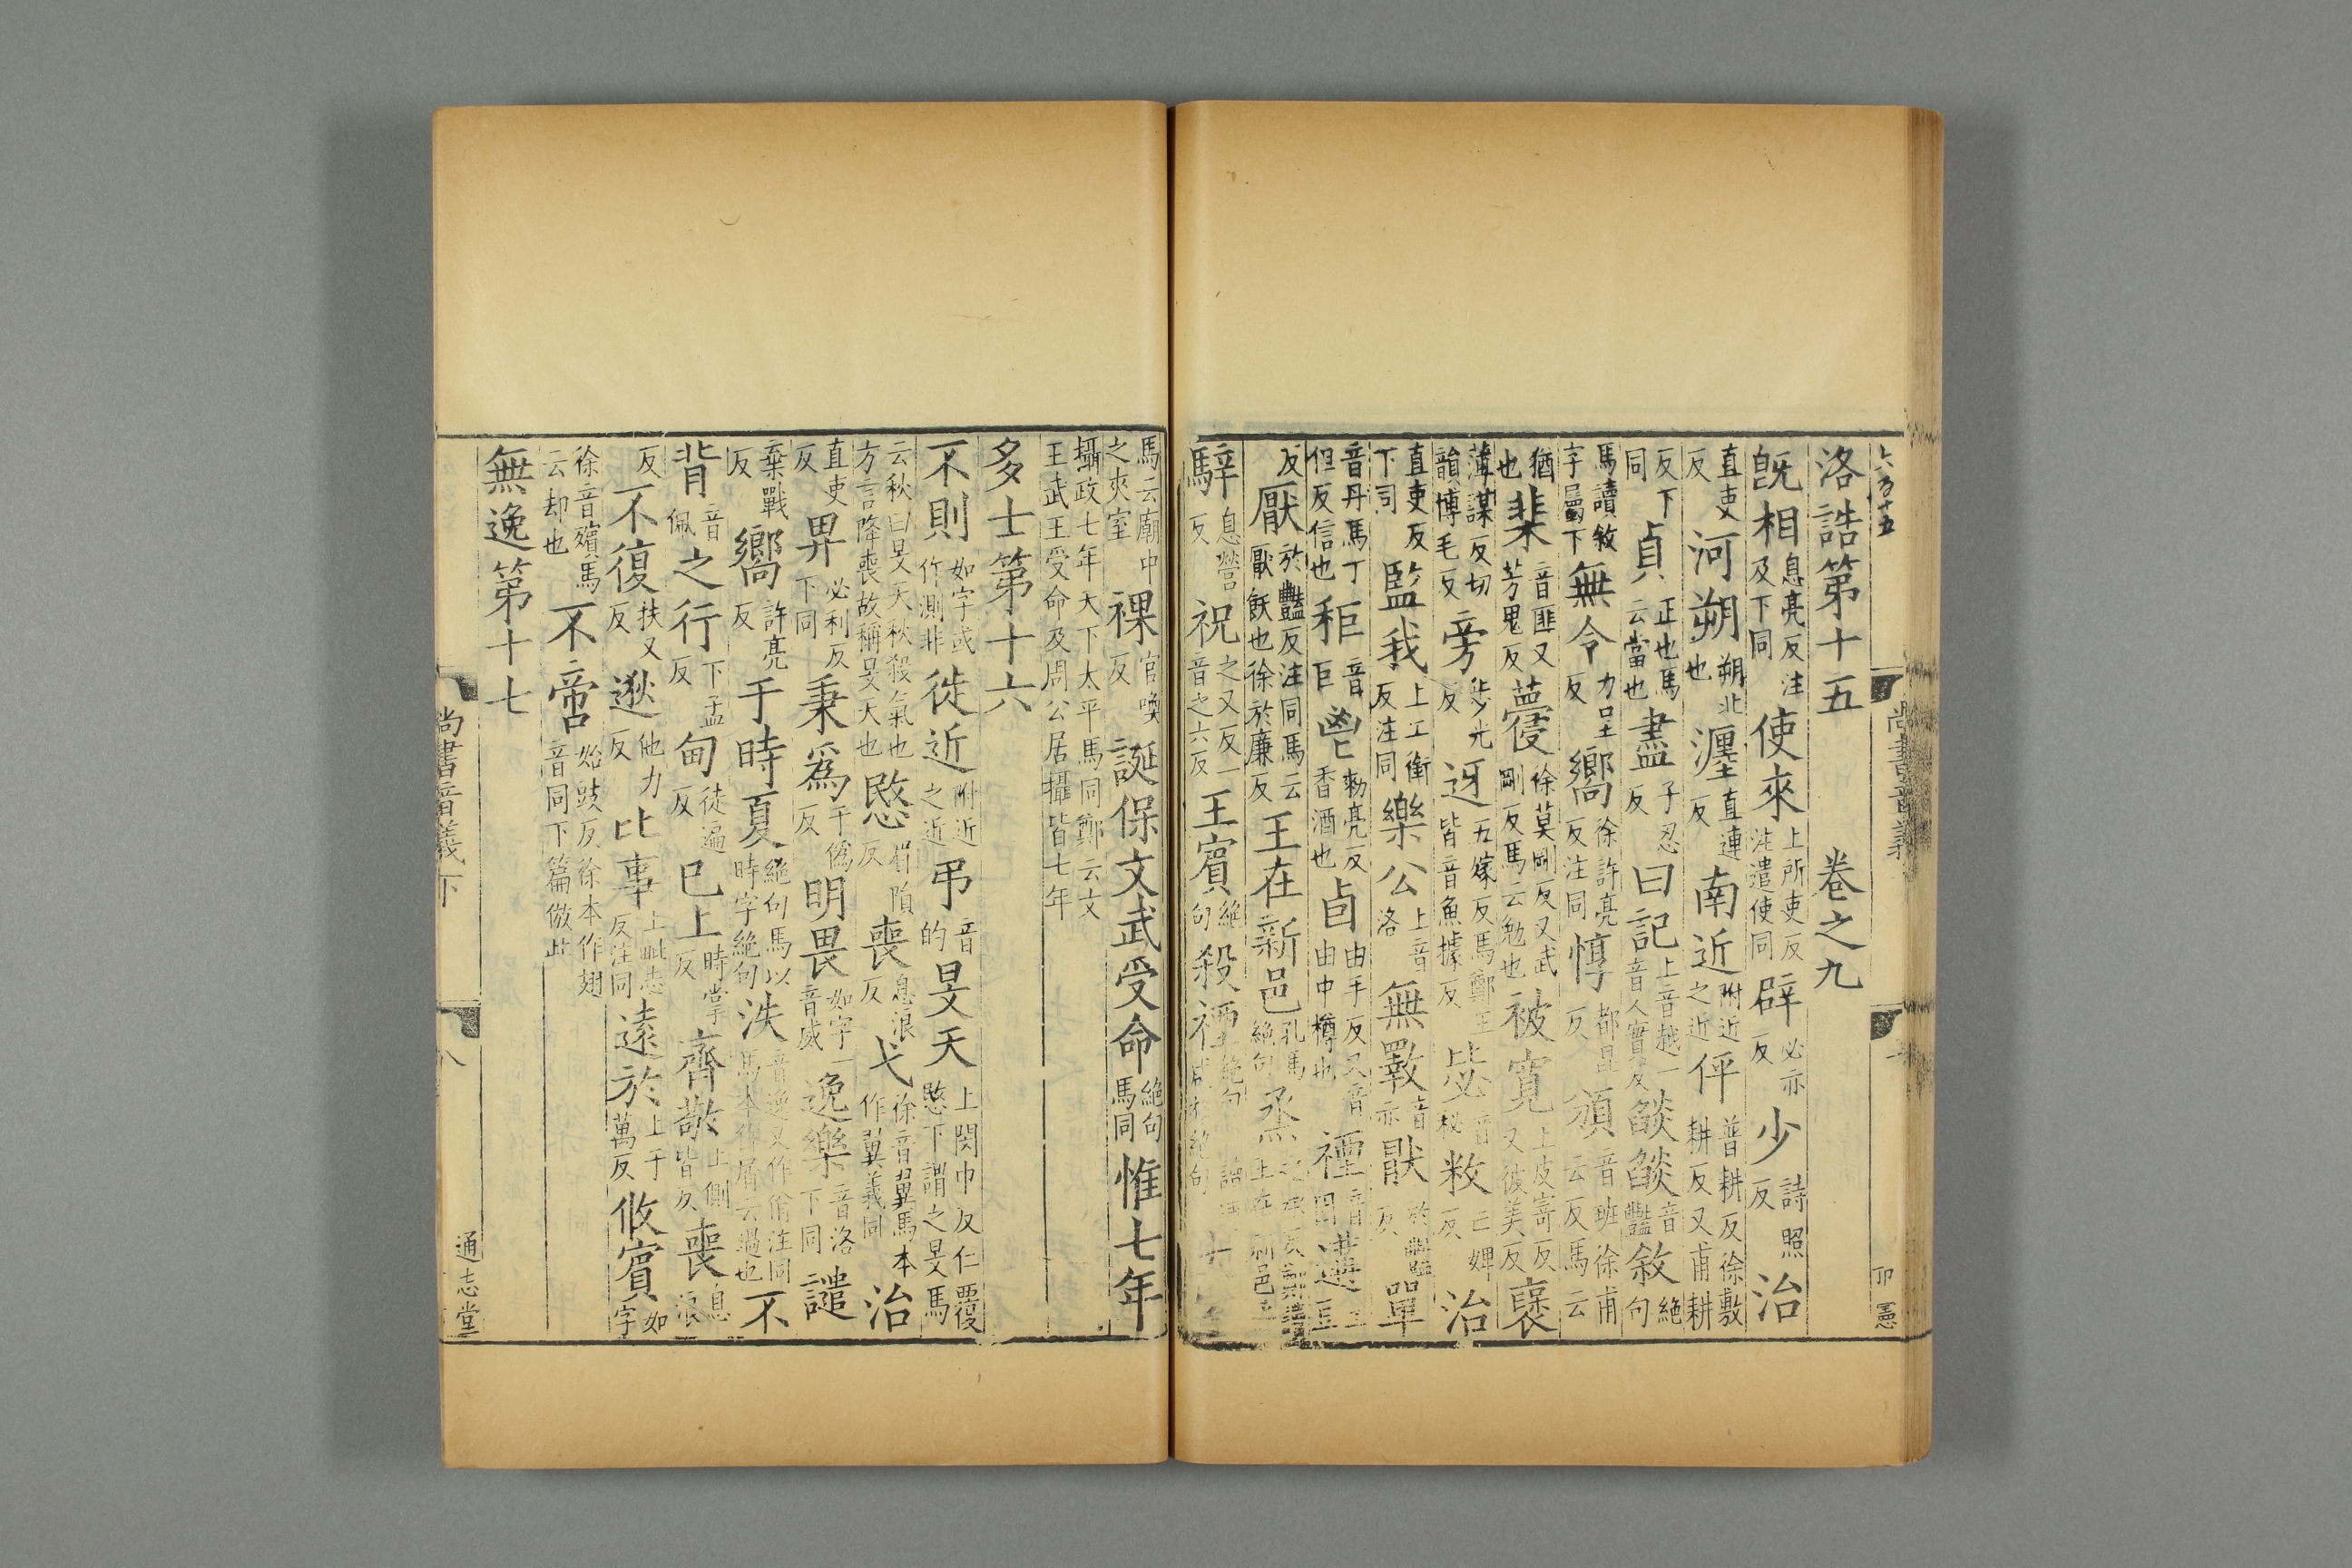 洛誥第十五 卷之九
既相息亮反注及下同使來上所吏反注遣使同辟必亦反少詩照反治
直吏反河朔朔北也瀍直連反南近附近之近伻普耕反徐敷耕反又甫耕
反下同貞正也馬云當也盡子忍反曰記上音越一音人實反燄燄音豔敘絕句
馬讀敘字屬下無令力呈反嚮徐許亮反注同惇都昆反頒音班徐甫云反馬云
猶也棐音匪又芳鬼反蘉徐莫剛反又武剛反馬云勉也被寬上皮寄反又彼美反襃
薄謀反切韻博毛反旁步光反迓五嫁反馬鄭王皆音魚據反毖音秘敉亡婢反治
直吏反下同監我上工銜反注同樂公上音洛無斁音亦猒於豔反單
音丹馬丁但反信也秬音巨鬯勑亮反香酒也卣由手反又音由中樽也禋音因
反厭於豔反注同馬云厭飫也徐於廉反王在新邑孔馬絕句烝之承反
騂息營反祝之又反一音之六反王賓絕句殺禋絕句
馬云廟中之夾室祼官喚反誕保文武受命絕句馬同惟七年
攝政七年天下太平馬同鄭云文王武王受命及周公居攝皆七年
多士第十六
不則如字或作測非徙近附近之近弔音的旻天上閔巾反仁覆愍下謂之旻馬
云秋曰旻天秋殺氣也方言降喪故稱旻天也愍眉隕反喪息浪反弋徐音翼馬本作翼義同治
直吏反畀必利反下同秉爲于僞反明畏如字一音威逸樂音洛下同譴
棄戰反嚮許亮反于時夏絕句馬以時字絕句泆音逸又作佾注同馬本作屑云過也不
背音佩之行下孟反甸徒遍反已上時掌反齊敬上側皆反喪息浪
反不復扶又反逖他力反比事上毗志反注同遠於上于萬反攸賓如字
徐音殯馬云却也不啻始豉反徐本作翅音同下篇倣此
無逸第十七
尚書音義下
八
通志堂